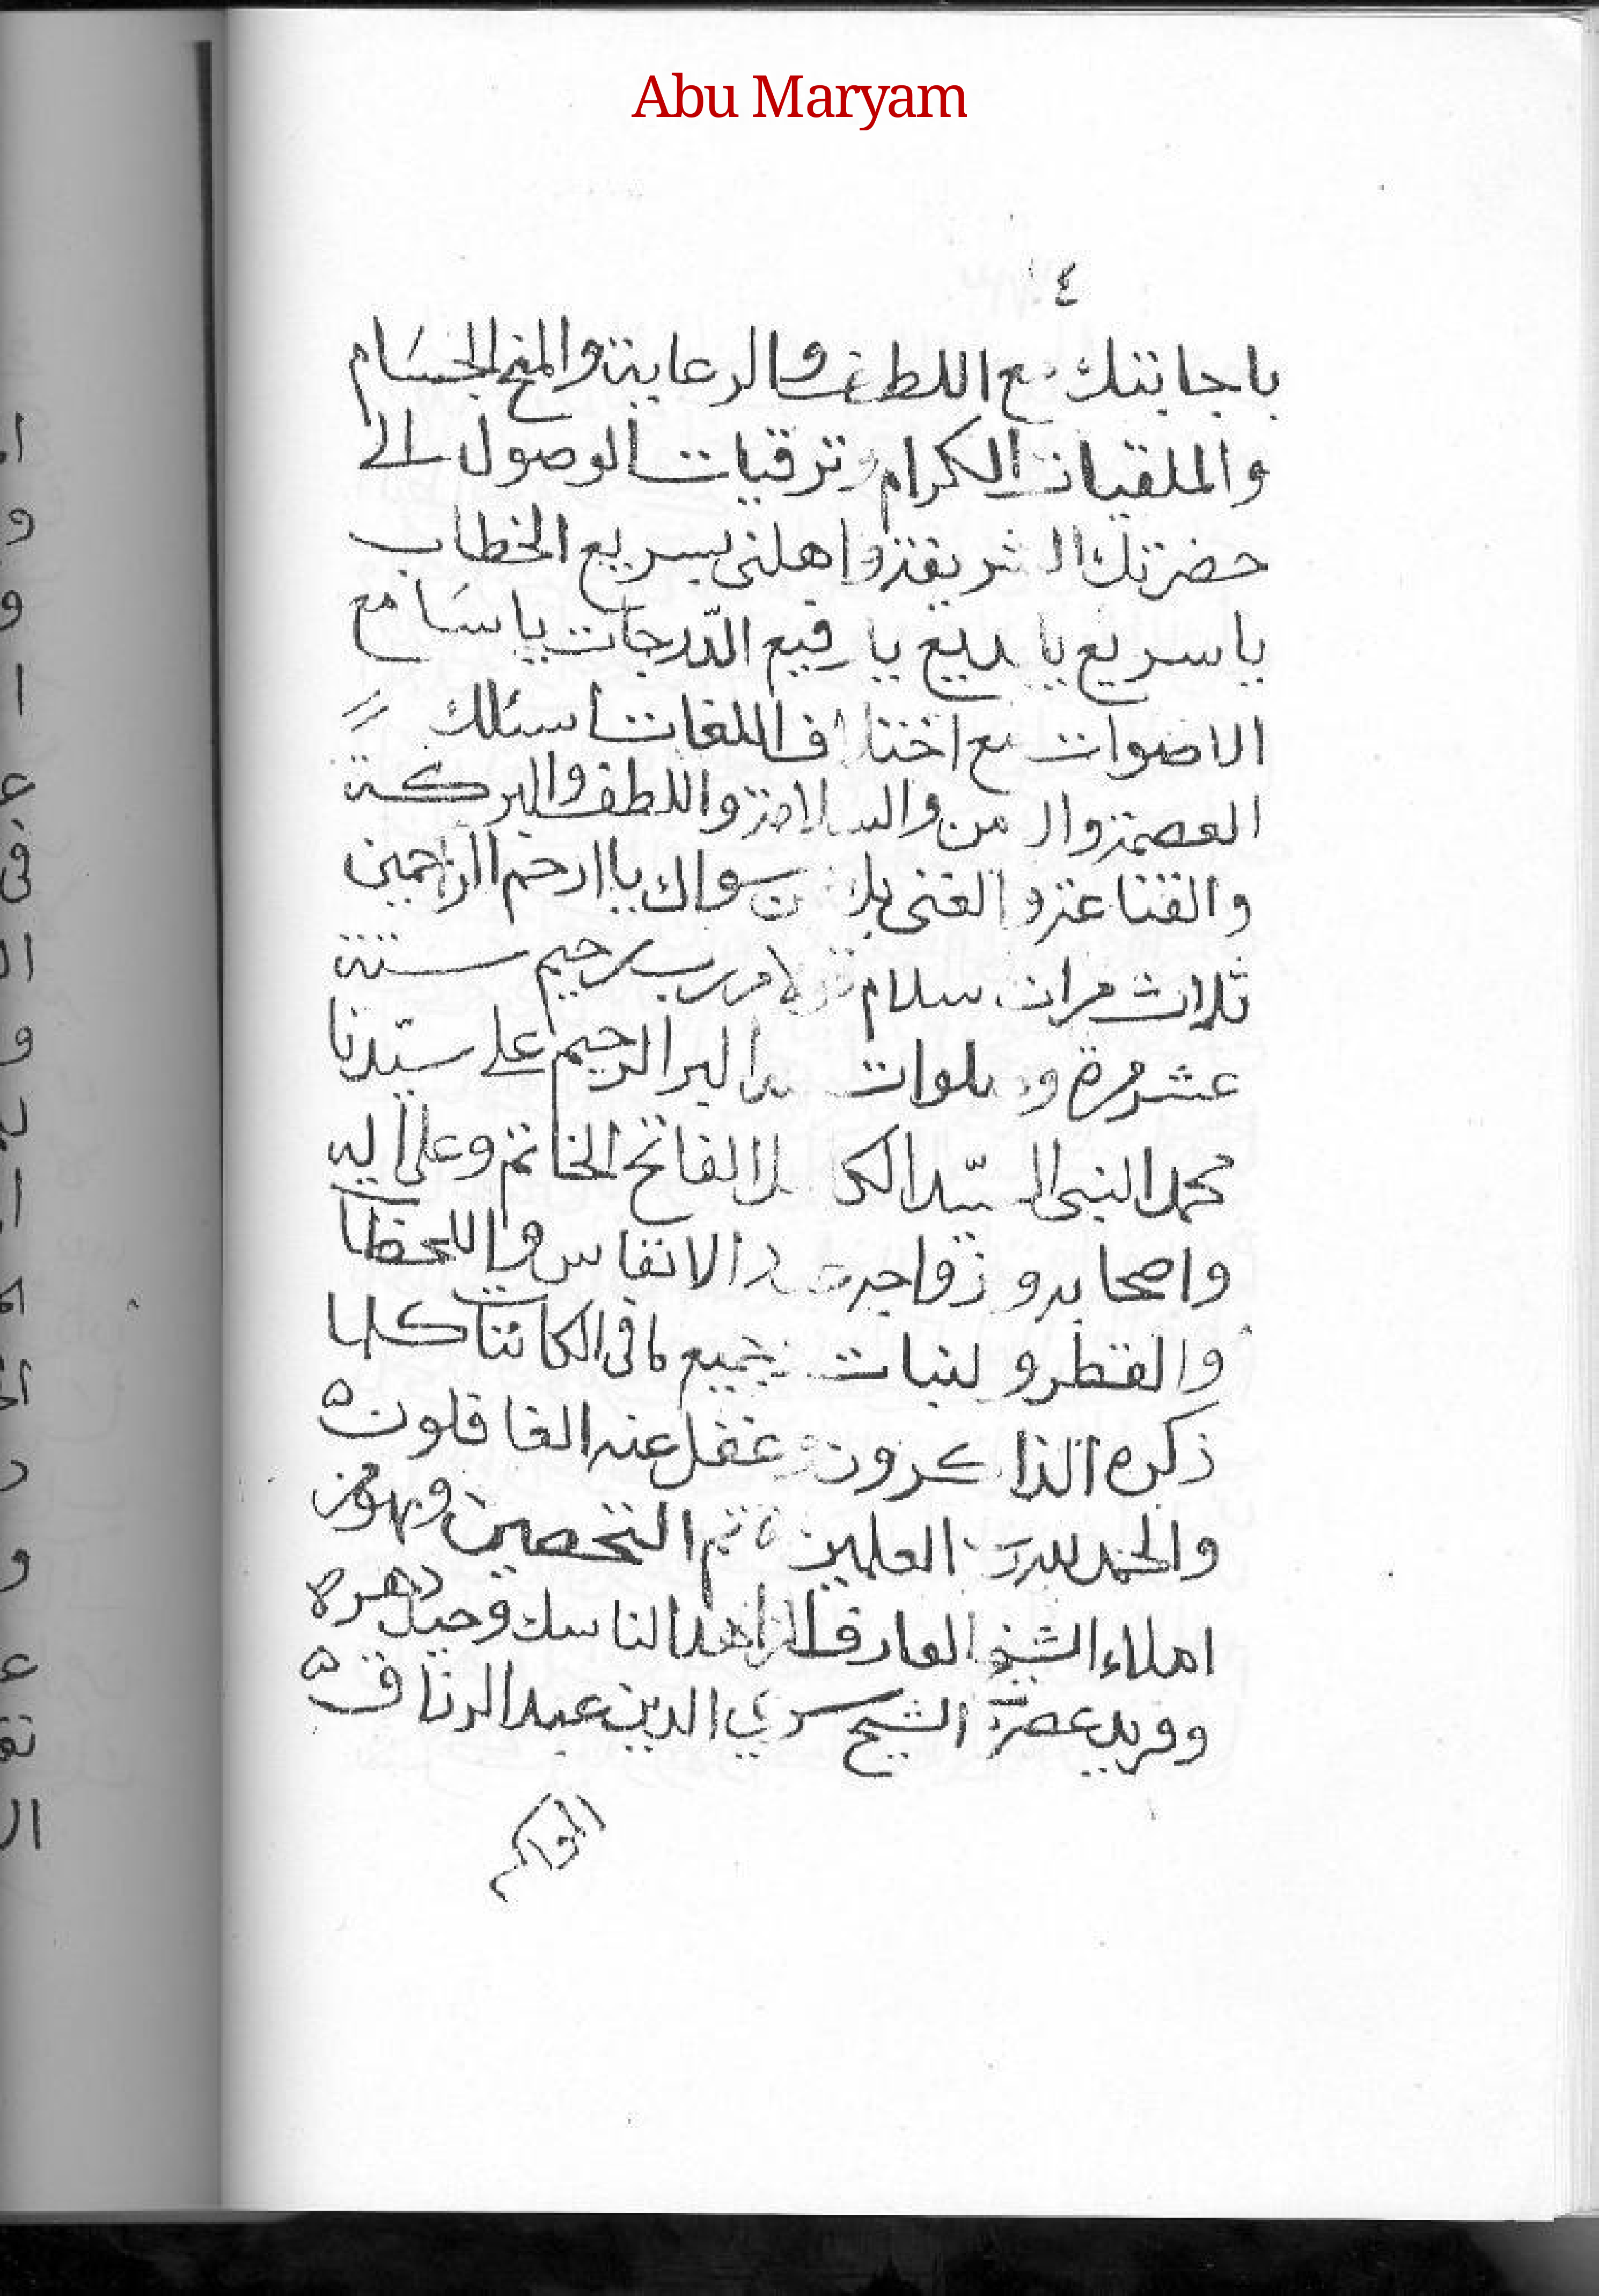 Abu Maryam
٤
باجابتك مع اللطف والرعاية والمنح الجسَام
والملقيات الكرام وترقيات الوصول الى
حضرتك الشريفة واهلنى بسريع الخطاب
يا سريع يا بديع يا رفيع الدّرجات يا سَامع
الاصوات مع اختلاف اللغات اسئلك
العصمة والامن والسلامة واللطف والبركة
والقناعة والغنى بك عن سواك يا ارحم الراحمين
ثلاث مرات سلام قولا من رب رحيم ستة
عشر مرة وصلوات الله البر الرحيم على سيّدنا
محمد النبى السيّد الكامل الفاتح الخاتم وعلى اله
واصحابه وازواجه عدد الانفاس واللحظات
والقطر والنبات وجميع ما فى الكائنات كلما
ذكره الذاكرون وغفل عنه الغافلون
والحمد لله رب العلمين تم التحصين وبهو من
املاء الشيخ العارف الزاهد الناسك وحيد دهره
وفريد عصره الشيخ سري الدين عبد الرزاق